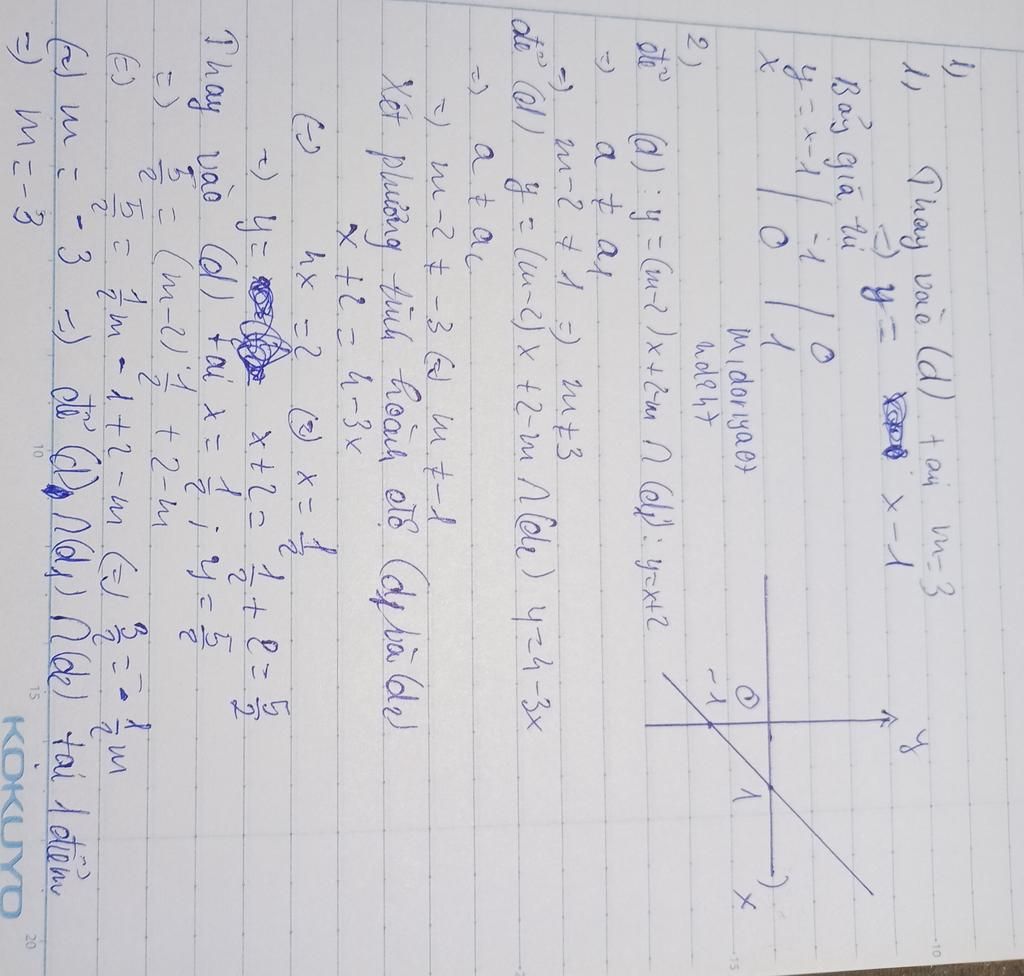 1)
1, Thay vào (d) tại m=3
=) y = x-1
Bảng giá trị
y = x-1 | -1 | 0
x | 0 | 1
y
0
-1
1
x
midoriya07
nd2h7
2)
để (d): y=(m-2)x+2-m ∩ (d1): y=x+2
=) a ≠ a1
=) m-2 ≠ 1 =) m≠3
để (d) y=(m-2)x+2-m ∩ (d2) y=4-3x
=) a ≠ a2
=) m-2 ≠ -3 (=) m ≠ -1
Xét phương trình hoành độ (d1) và (d2)
x+2 = 4-3x
(=) 4x = 2 (=) x = 1/2
=) y = x+2 = 1/2 + 2 = 5/2
Thay vào (d) tại x = 1/2 ; y = 5/2
=) 5/2 = (m-2).1/2 + 2-m
(=) 5/2 = 1/2m - 1+2-m (=) 3/2 = -1/2m
(=) m = -3 =) để (d) ∩ (d1) ∩ (d2) tại 1 điểm
=) m = -3
10
15
20
-10
-15
KOKUYO